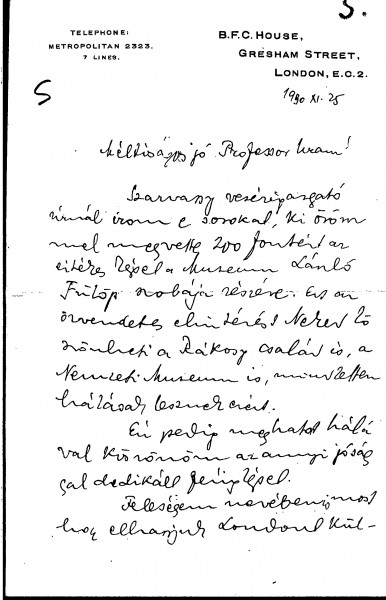 5.
TELEPHONE:
METROPOLITAN 2323.
7 LINES.
B.F.C. HOUSE,
GRESHAM STREET,
LONDON, E.C.2.
5
1930 XI. 25
Méltóságos jó Professor Uram!
Szarvasy vezérigazgató
úrnál írom e sorokat, ki öröm
mel megvette 200 fontért az
képet a Museum László
Fülöp szobája részére. Ez az
örvendetes elintézést Neked kö
szönheti a Rákosy család is, a
Nemzeti Museum is, mindketten
hálásak lesznek ezért.
Én pedig meghatott hálá
val köszönöm az annyi jóság
gal dedikált fényképet.
Feleségem nevében is most
hogy elhagyjuk Londont kül-